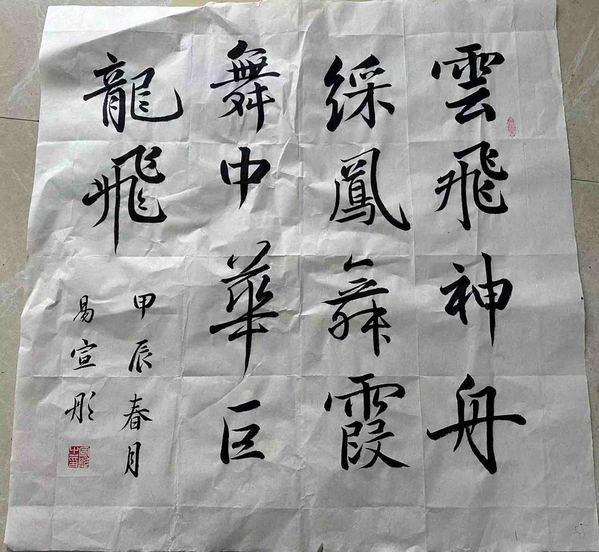 雲飛神舟
綵鳳舞霞
舞中華巨
龍飛
甲辰春月
易宣彤